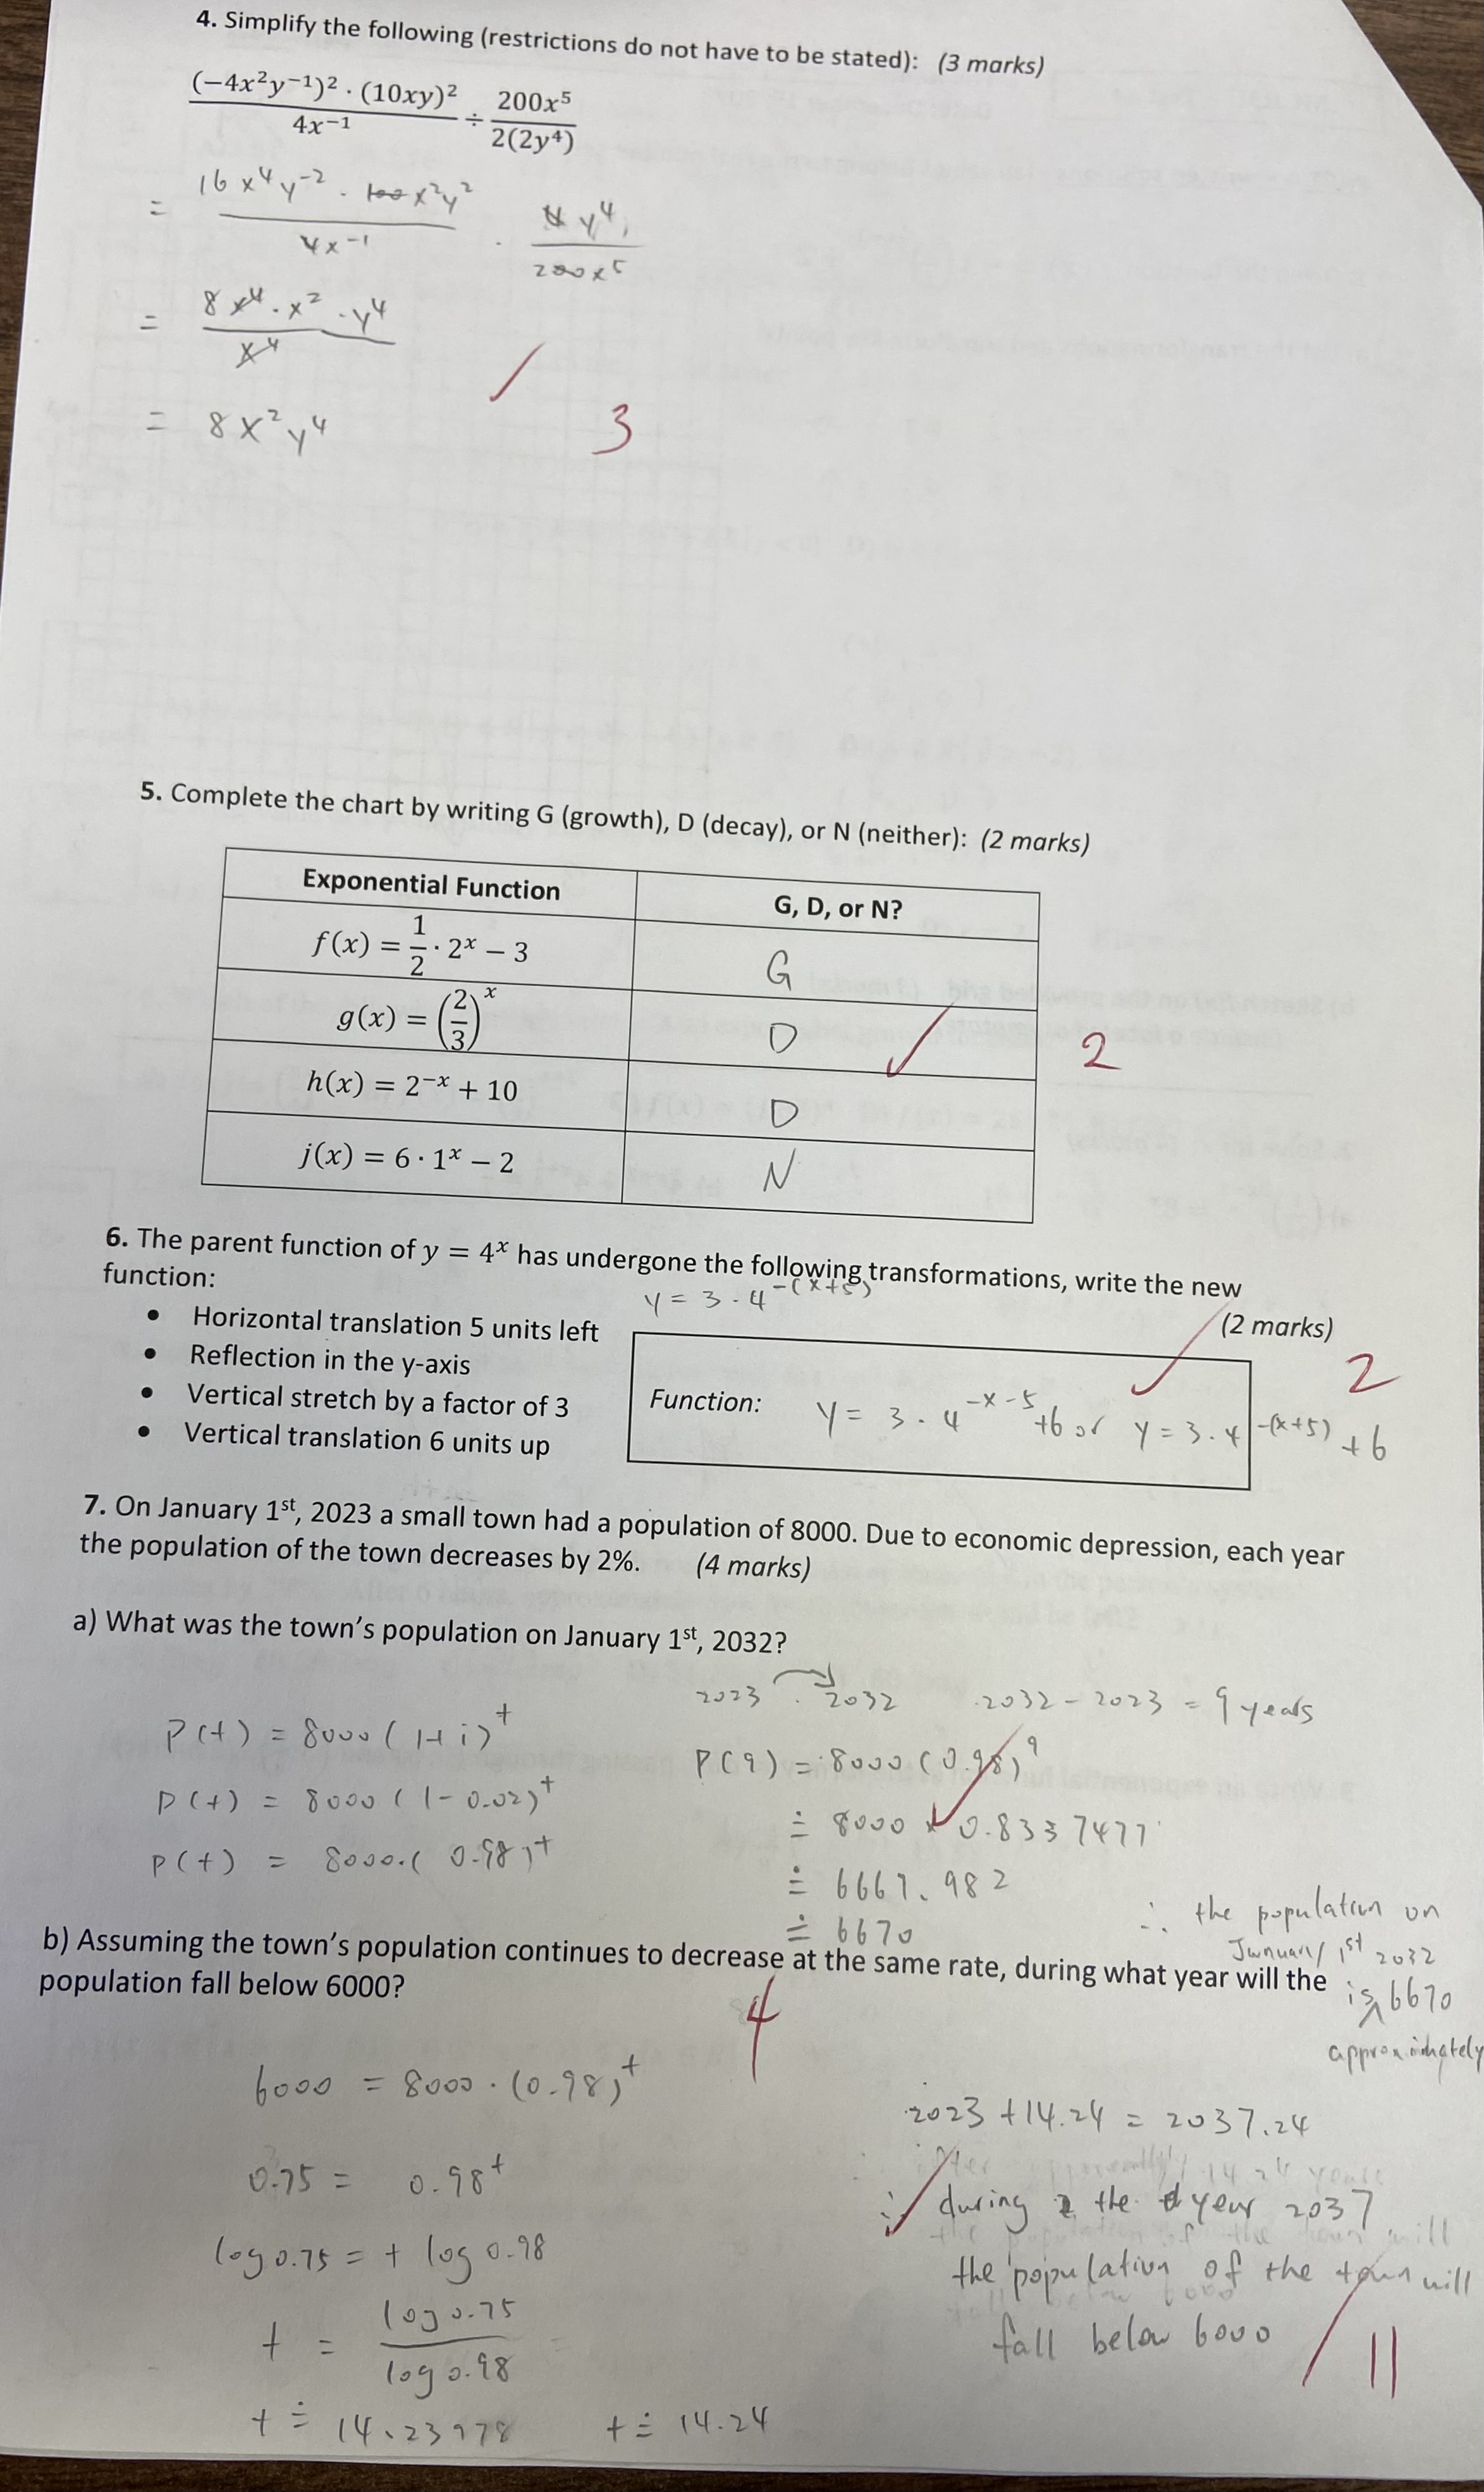 4. Simplify the following (restrictions do not have to be stated): (3 marks)
(−4x²y⁻¹)² · (10xy)² / 4x⁻¹ ÷ 200x⁵ / 2(2y⁴)
= 16x⁴y⁻² · 100x²y² / 4x⁻¹ · 4y⁴ / 200x⁵
= 8x⁴ · x² · y⁴ / x⁴
= 8x²y⁴
3
5. Complete the chart by writing G (growth), D (decay), or N (neither): (2 marks)
Exponential Function G, D, or N?
f(x) = 1/2 · 2ˣ − 3 G
g(x) = (2/3)ˣ D
h(x) = 2⁻ˣ + 10 D
j(x) = 6 · 1ˣ − 2 N
2
6. The parent function of y = 4ˣ has undergone the following transformations, write the new
function:
(2 marks)
y = 3 · 4^-(x+5)
• Horizontal translation 5 units left
• Reflection in the y-axis
• Vertical stretch by a factor of 3
• Vertical translation 6 units up
Function: y = 3 · 4^(-x-5) + 6 or y = 3 · 4^-(x+5) + 6
2
7. On January 1st, 2023 a small town had a population of 8000. Due to economic depression, each year
the population of the town decreases by 2%. (4 marks)
a) What was the town's population on January 1st, 2032?
2023 2032 2032 − 2023 = 9 years
P(t) = 8000 (1+i)^t
P(t) = 8000 (1 − 0.02)^t
P(t) = 8000 · (0.98)^t
P(9) = 8000 (0.98)⁹
≐ 8000 × 0.8337477
≐ 6669.982
≐ 6670
∴ the population on
January 1st 2032
is approximately 6670
b) Assuming the town's population continues to decrease at the same rate, during what year will the
population fall below 6000?
4
6000 = 8000 · (0.98)^t
0.75 = 0.98^t
log 0.75 = t log 0.98
t = log 0.75 / log 0.98
t ≐ 14.23978 t ≐ 14.24
2023 + 14.24 = 2037.24
∴ during the year 2037
the population of the town will
fall below 6000
/11